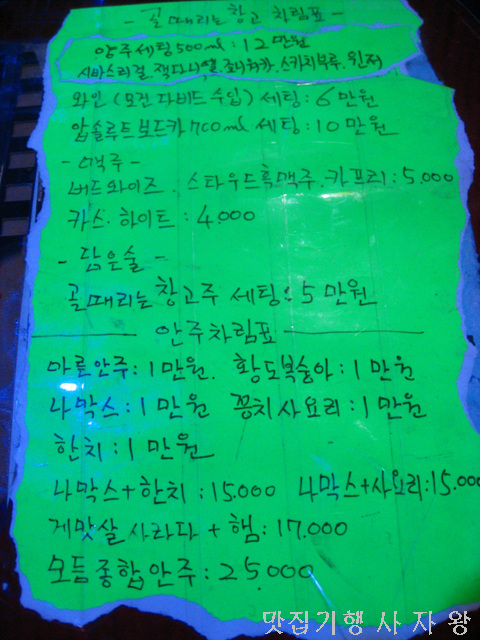 - 골때리는 창고 차림표 -
양주세팅 500ml : 12만원
시바스리걸. 잭다니엘. 죠니워카. 스카치부루. 윈저
와인 (모건 다비드 수입) 세팅 : 6만원
압솔루트보드카 700ml 세팅 : 10만원
- 맥주 -
버드와이즈. 스타우드흑맥주. 카프리 : 5.000
카스. 하이트 : 4.000
- 담은술 -
골때리는 창고주 세팅 : 5만원
안주차림표
마른안주 : 1만원. 황도복숭아 : 1만원
나막스 : 1만원 꽁치사요리 : 1만원
한치 : 1만원
나막스+한치 : 15.000 나막스+사요리 : 15.000
게맛살 사라다 + 햄 : 17.000
모듬종합안주 : 25.000
맛집기행사자왕